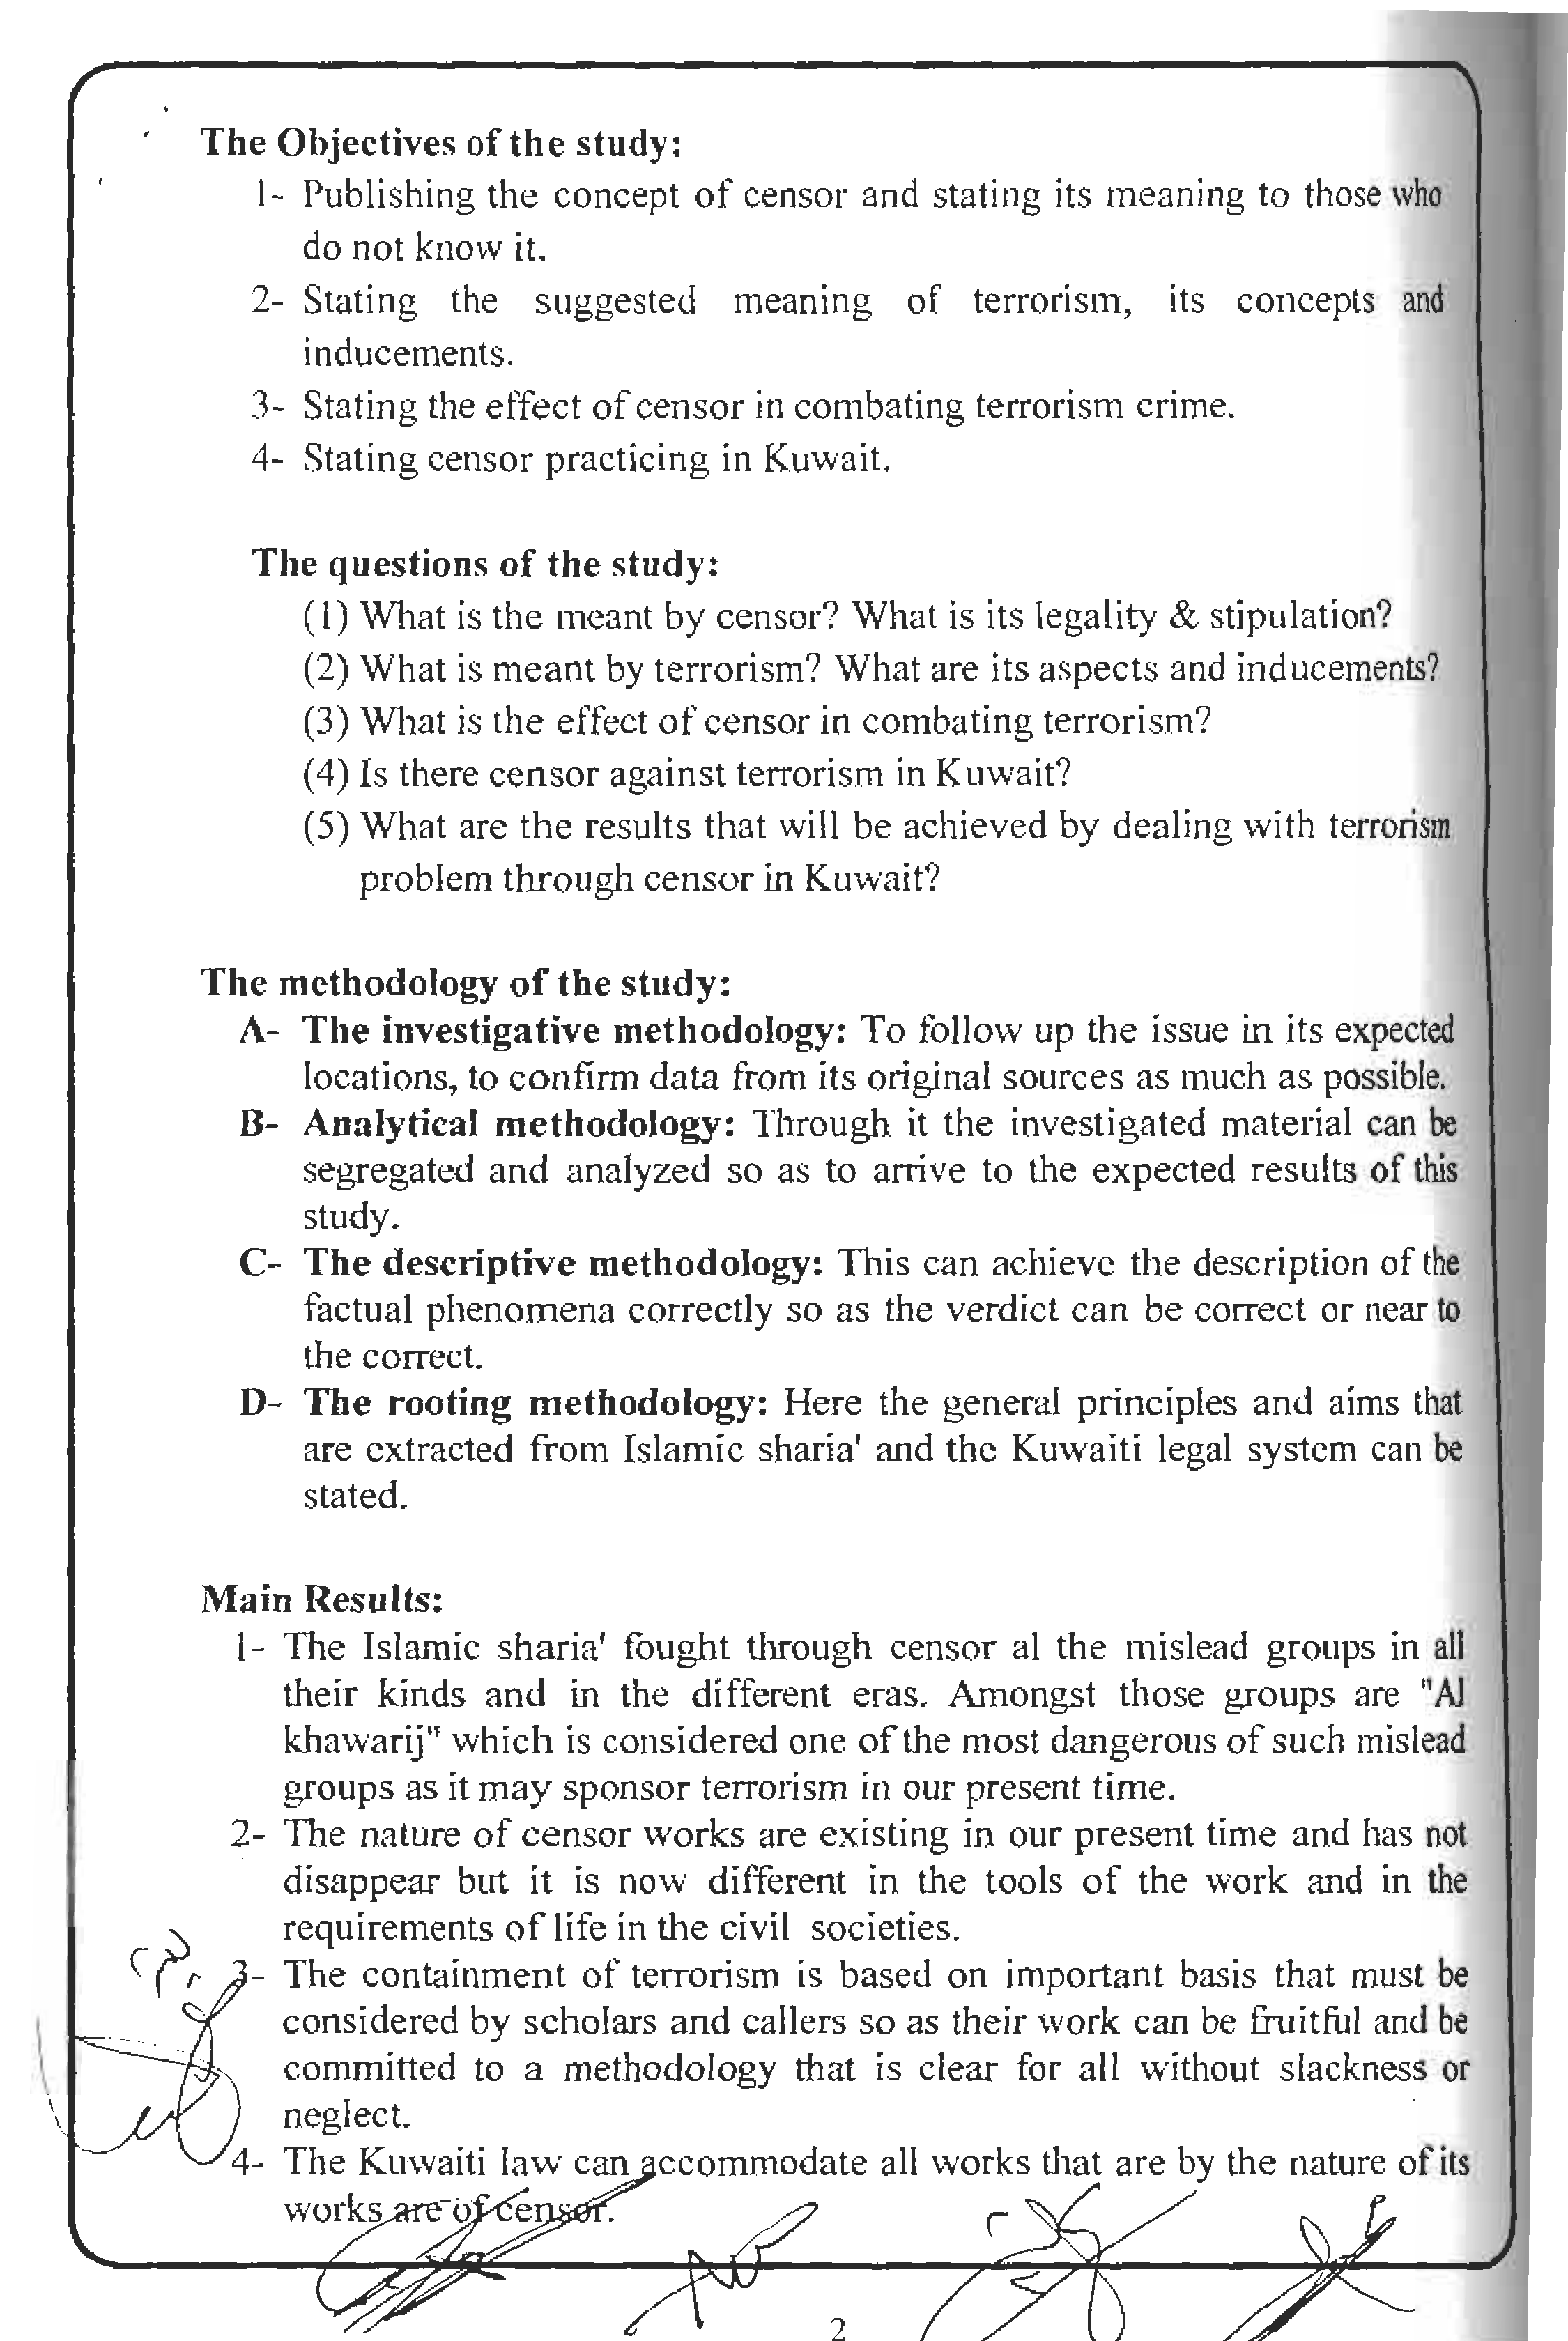 The Objectives of the study:
1- Publishing the concept of censor and stating its meaning to those who
do not know it.
2- Stating the suggested meaning of terrorism, its concepts and
inducements.
3- Stating the effect of censor in combating terrorism crime.
4- Stating censor practicing in Kuwait.
The questions of the study:
(1) What is the meant by censor? What is its legality & stipulation?
(2) What is meant by terrorism? What are its aspects and inducements?
(3) What is the effect of censor in combating terrorism?
(4) Is there censor against terrorism in Kuwait?
(5) What are the results that will be achieved by dealing with terrorism
problem through censor in Kuwait?
The methodology of the study:
A- The investigative methodology: To follow up the issue in its expected
locations, to confirm data from its original sources as much as possible.
B- Analytical methodology: Through it the investigated material can be
segregated and analyzed so as to arrive to the expected results of this
study.
C- The descriptive methodology: This can achieve the description of the
factual phenomena correctly so as the verdict can be correct or near to
the correct.
D- The rooting methodology: Here the general principles and aims that
are extracted from Islamic sharia' and the Kuwaiti legal system can be
stated.
Main Results:
1- The Islamic sharia' fought through censor al the mislead groups in all
their kinds and in the different eras. Amongst those groups are "Al
khawarij" which is considered one of the most dangerous of such mislead
groups as it may sponsor terrorism in our present time.
2- The nature of censor works are existing in our present time and has not
disappear but it is now different in the tools of the work and in the
requirements of life in the civil societies.
3- The containment of terrorism is based on important basis that must be
considered by scholars and callers so as their work can be fruitful and be
committed to a methodology that is clear for all without slackness or
neglect.
4- The Kuwaiti law can accommodate all works that are by the nature of its
works are of censor.
2